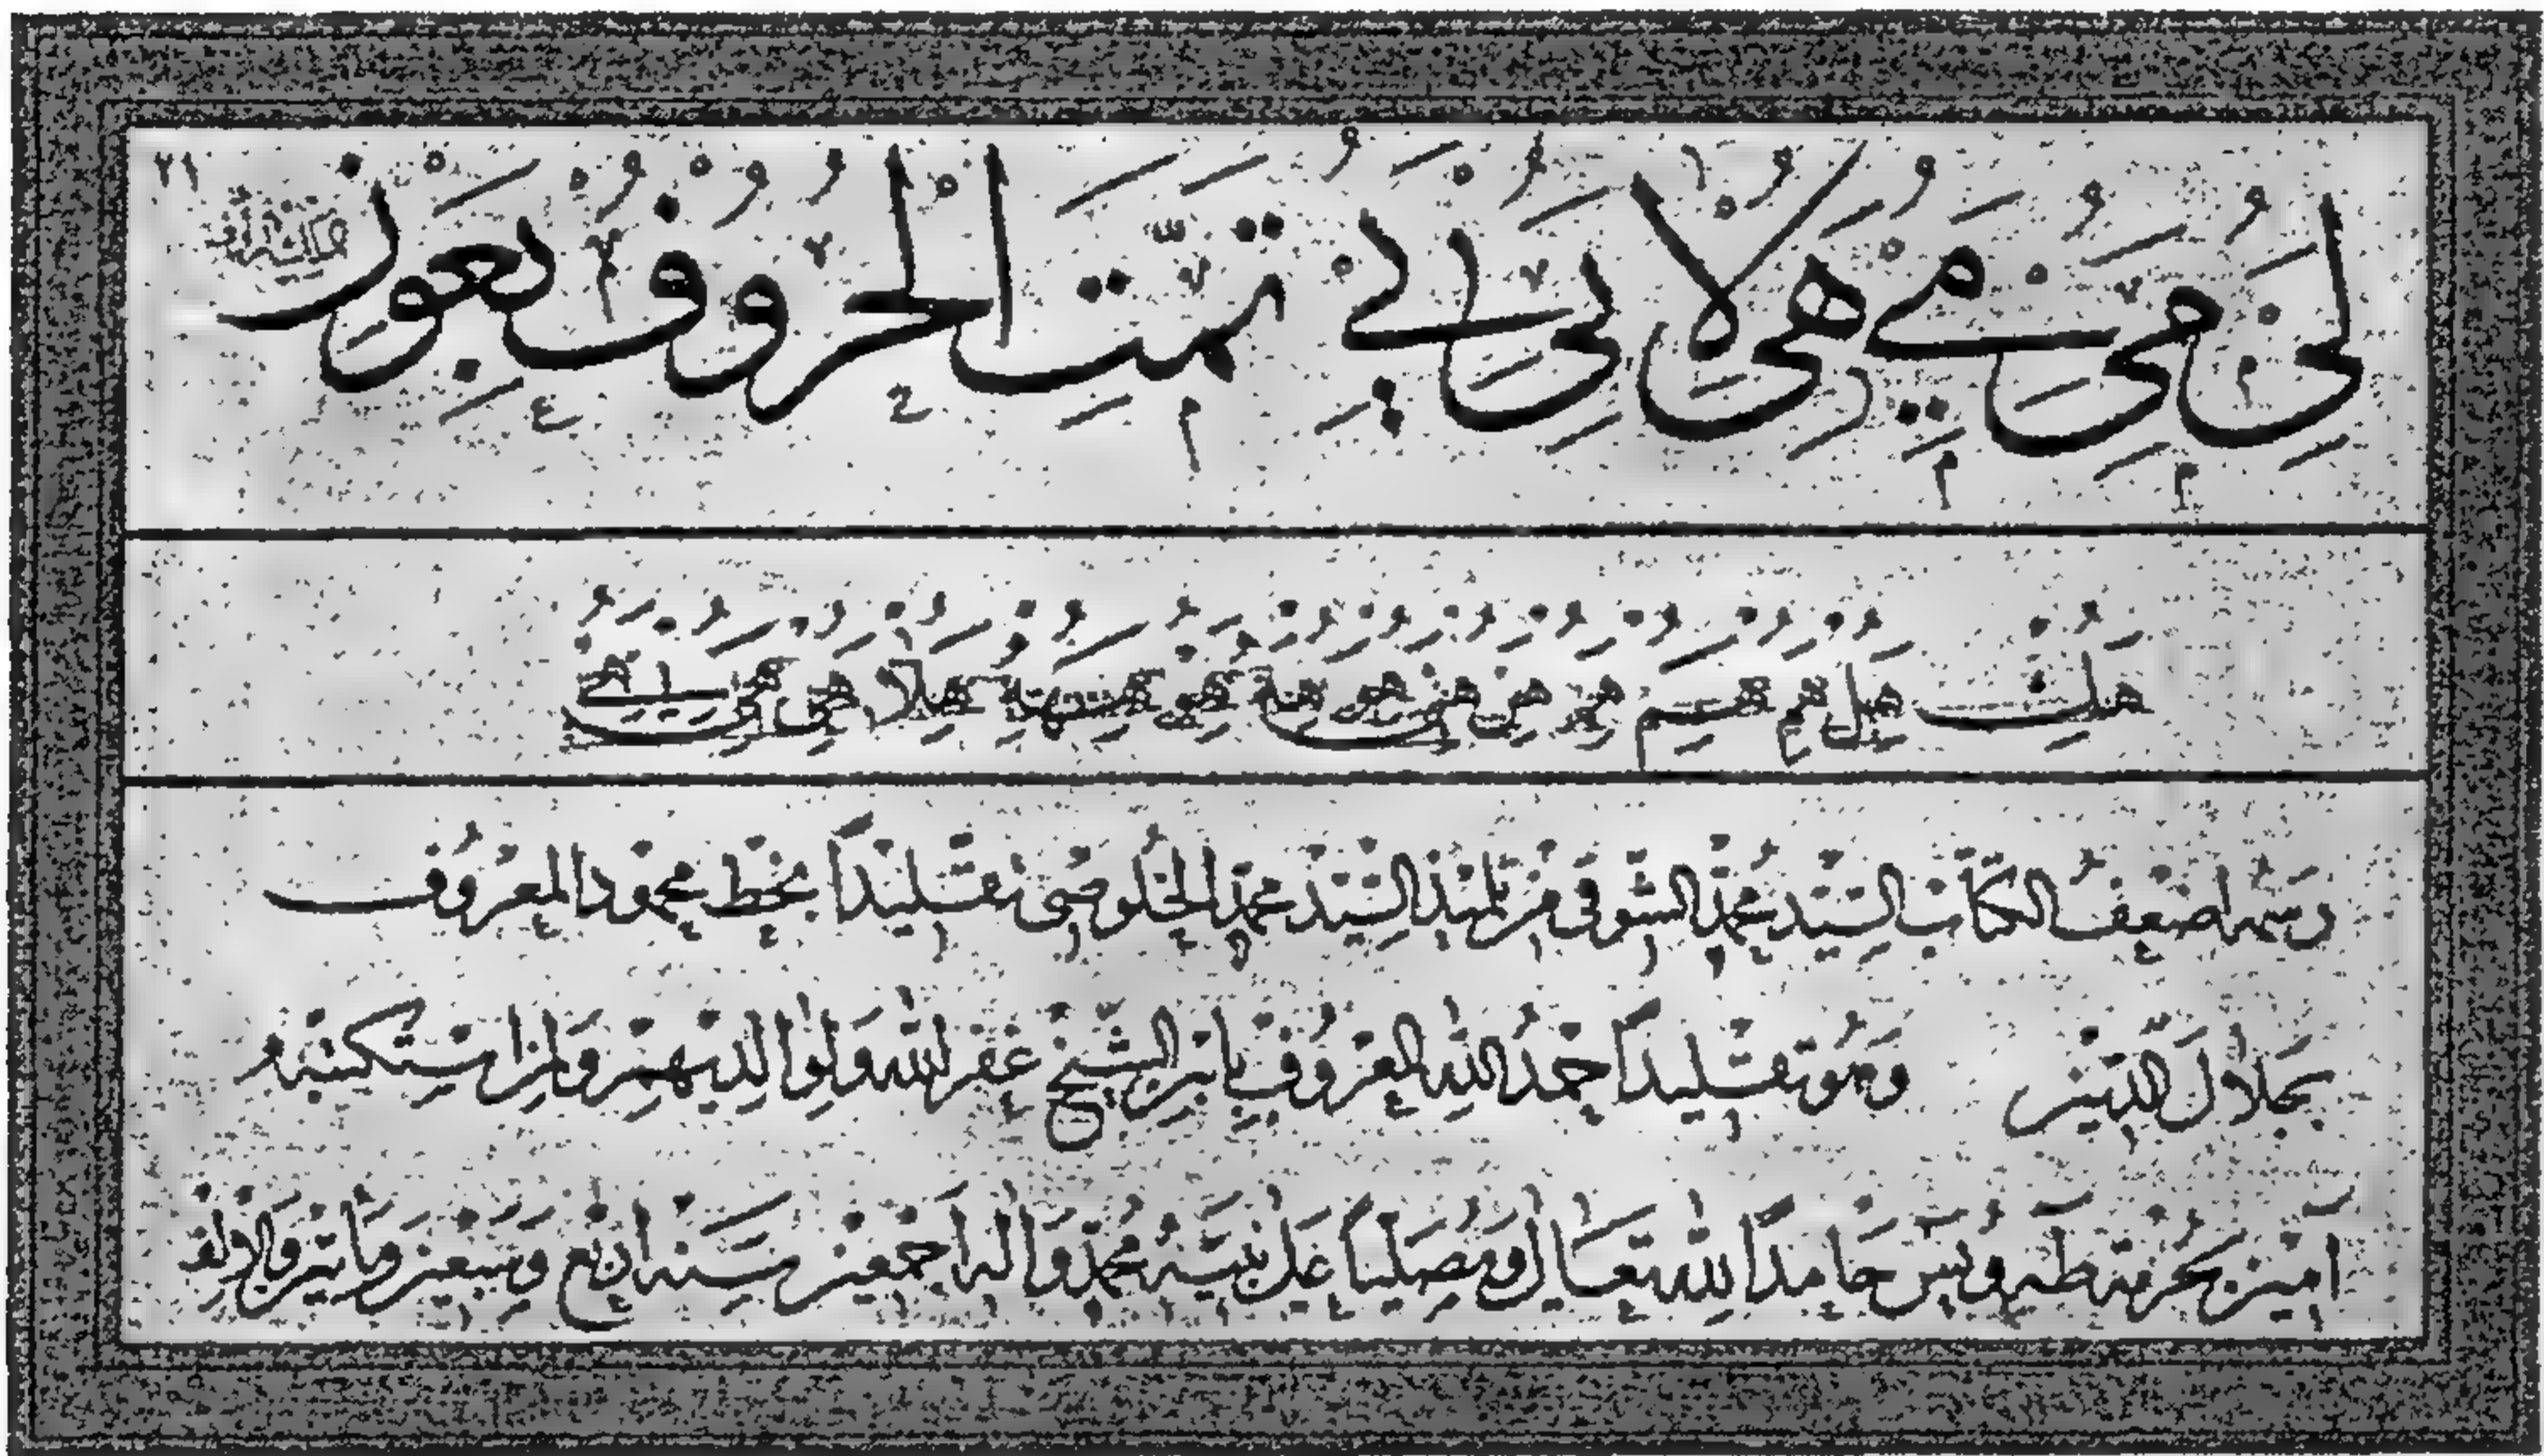 لى مى مے هى لا يى اے تمت الحروف بعون
٢١
هلف هل هم هيم هو هن هى هه هى هلا هى هى هے
رسمه اضعف الكتاب السيد محمد الشوقى من تلميذ السيد محمد الخلوصى تقليداً بخط محمود المعروف
بجلال الدين وهو تقليداً حمد الله المعروف بابن الشيخ غفر الله ولوالديهم ولمن استكتبه
آمين بحرمة طه ويس حامداً لله تعالى ومصلياً على نبيه محمد وآله اجمعين سنه اربع وسبعين ومأتين والالف